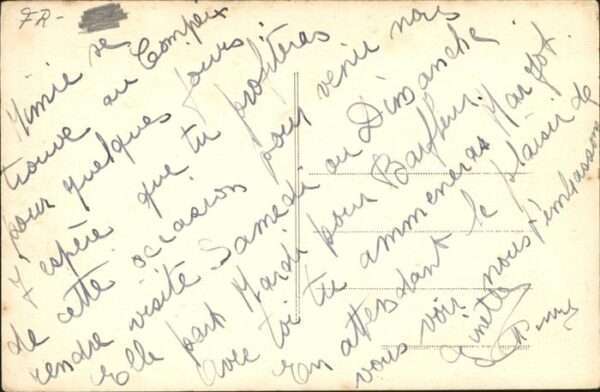 FR-
Mimie se
trouve au Compeix
pour quelques jours
J'espère que tu profiteras
de cette occasion pour venir nous
rendre visite Samedi ou Dimanche
Elle part Mardi pour Barfleur.
avec toi tu ammeneras Margot.
En attendant le plaisir de
vous voir nous t'embrassons
Ginette